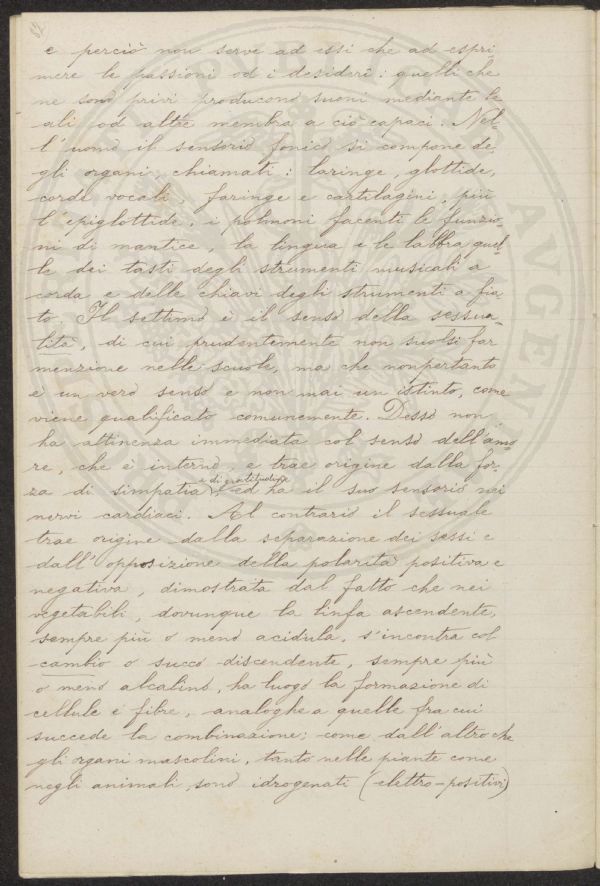 e perciò non serve ad essi che ad espri-
mere le passioni od i desideri: quelli che
ne sono privi producono suoni mediante le
ali od altre membra a ciò capaci. Nel-
l'uomo il sensorio fonico si compone de-
gli organi, chiamati: laringe, glottide,
corde vocali, faringe e cartilagini, più
l'epiglottide, i polmoni facenti le funzio-
ni di mantice, la lingua e le labbra quel-
le dei tasti degli strumenti musicali a
corda e delle chiavi degli strumenti a fia-
to. Il settimo è il senso della sessua-
lità, di cui prudentemente non suolsi far
menzione nelle scuole, ma che nonpertanto
è un vero senso e non mai un istinto, come
viene qualificato comunemente. Desso non
ha attinenza immediata col senso dell'amo-
re, che è interno, e trae origine dalla for-
za di simpatia e di gratitudine ed ha il suo sensorio nei
nervi cardiaci. Al contrario il sessuale
trae origine dalla separazione dei sessi e
dall'opposizione della polarità positiva e
negativa, dimostrata dal fatto che nei
vegetabili, dovunque la linfa ascendente,
sempre più o meno acidula, s'incontra col
cambio o succo discendente, sempre più
o meno alcalino, ha luogo la formazione di
cellule e fibre, analoghe a quelle fra cui
succede la combinazione; come dall'altro che
gli rgani mascolini, tanto nelle piante come
negli animali, sono idrogenati (elettro-positivi)